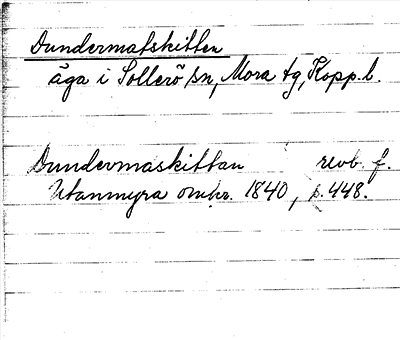 Dundermatskitten
äga i Sollerö sn, Mora tg, Kopp. l.
Dundermaskittan revb. f.
Utanmyra omkr. 1840, p. 448.